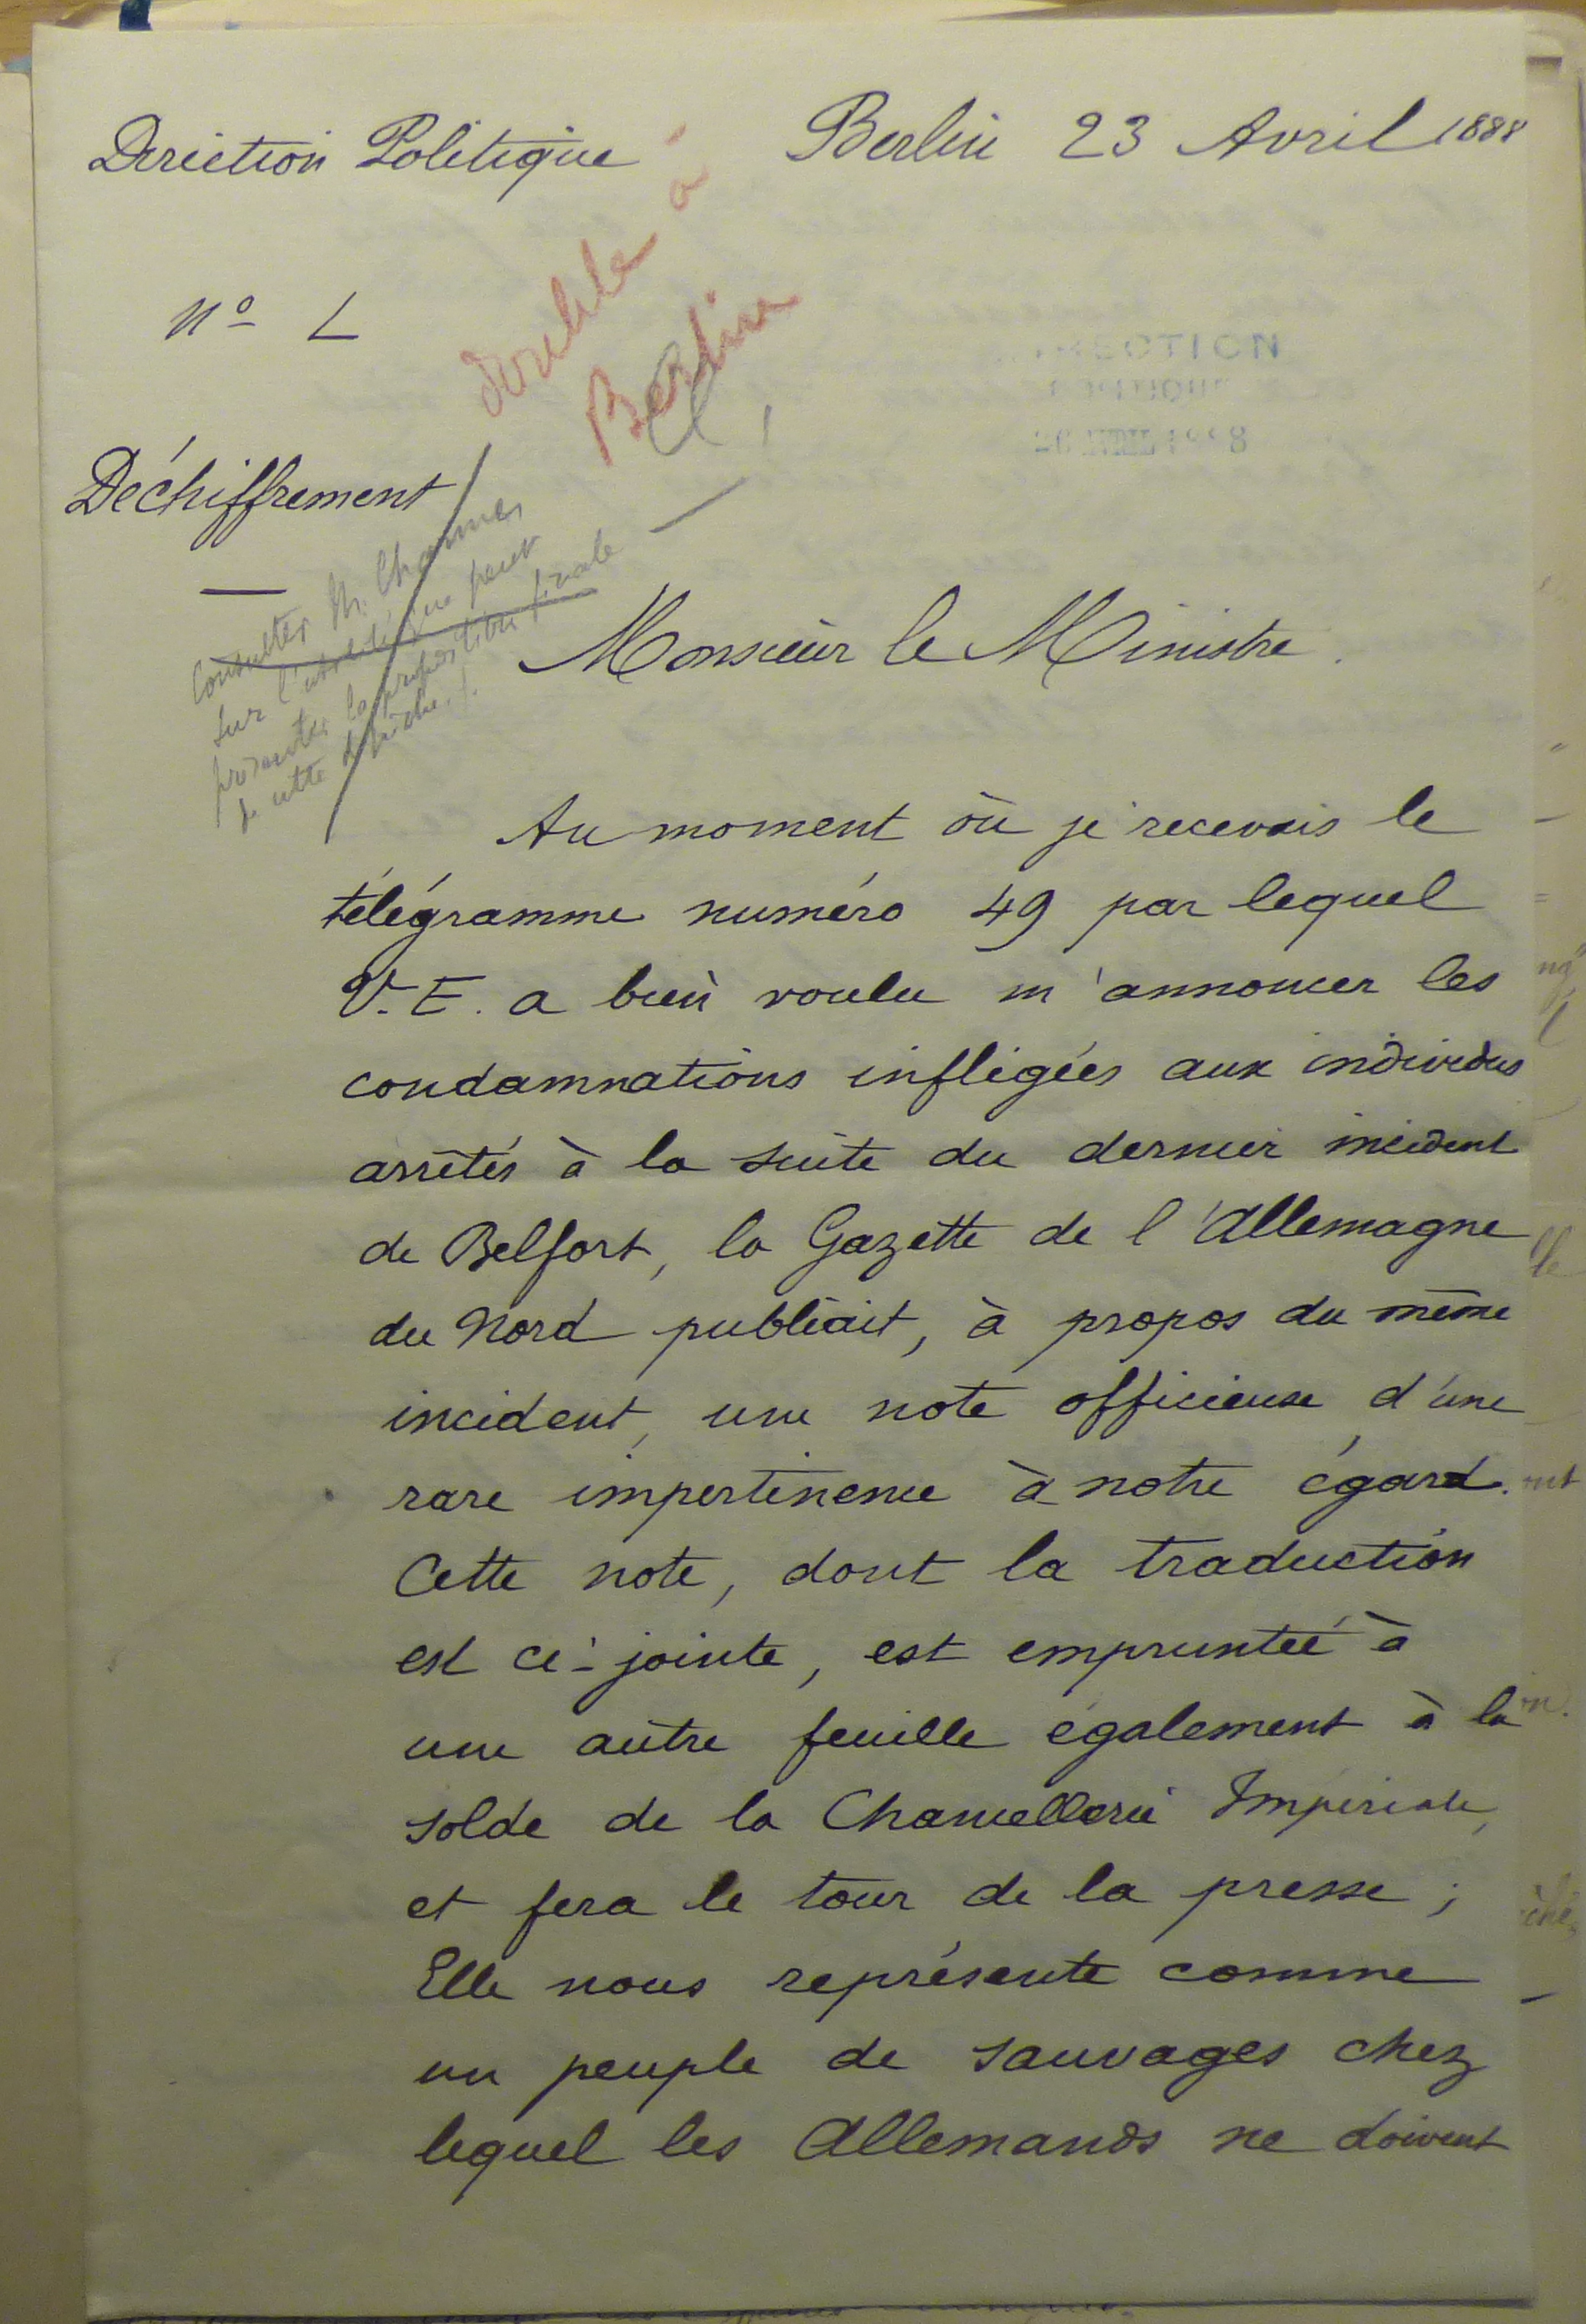 Direction Politique
Berlin 23 Avril 1888
Nº L
Double à
Berlin
DIRECTION
POLITIQUE
26 AVRIL 1888
Déchiffrement
Consulter M. Charmes
sur l'utilité que peut
présenter la proposition finale
de cette dépêche.
Monsieur le Ministre.
Au moment où je recevais le
télégramme numéro 49 par lequel
V. E. a bien voulu m'annoncer les
condamnations infligées aux individus
arrêtés à la suite du dernier incident
de Belfort, la Gazette de l'Allemagne
du Nord publiait, à propos du même
incident, une note officieuse, d'une
rare impertinence à notre égard.
Cette note, dont la traduction
est ci-jointe, est empruntée à
une autre feuille également à la
solde de la Chancellerie Impériale,
et fera le tour de la presse ;
Elle nous représente comme
un peuple de sauvages chez
lequel les Allemands ne doivent